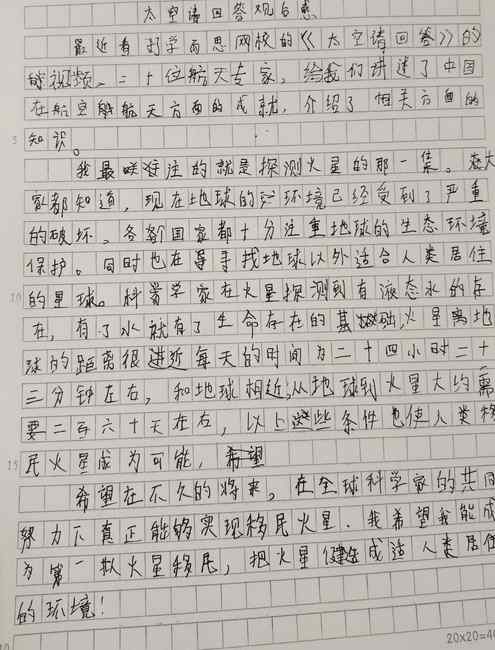 太空请回答观后感
最近看到学而思网校的《太空请回答》的
视频。二十位航天专家,给我们讲述了中国
在航空航天方面的成就,介绍了相关方面的
知识。
我最关注的就是探测火星的那一集。大
家都知道,现在地球的环境已经受到了严重
的破坏。各国家都十分注重地球的生态环境
保护。同时也在寻找地球以外适合人类居住
的星球。科学家在火星探测到有液态水的存
在,有了水就有了生命存在的基础,火星离地
球的距离很近每天的时间为二十四小时二十
三分钟左右,和地球相近;从地球到火星大约需
要二百六十天左右,以上这些条件也使人类移
民火星成为可能,希望
希望在不久的将来,在全球科学家的共同
努力下真正能够实现移民火星.我希望我能成
为第一批火星移民,把火星建造成适人类居住
的环境!
5
10
15
20x20=40